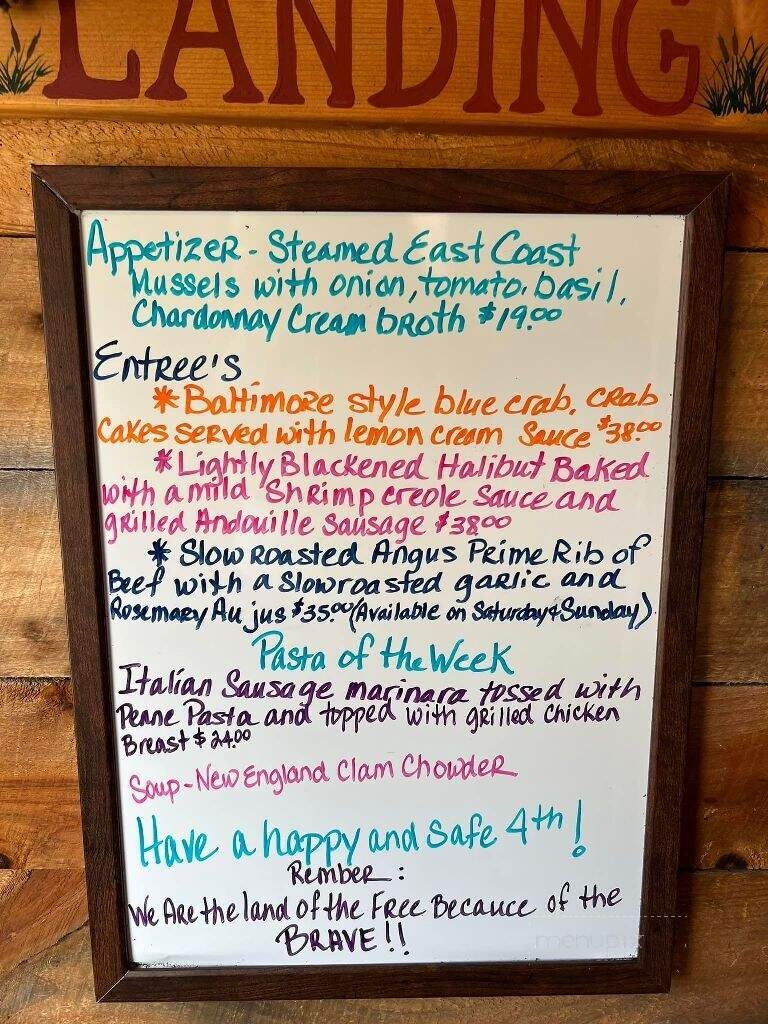 LANDING
Appetizer - Steamed East Coast
Mussels with onion, tomato, basil,
Chardonnay Cream broth $19.00
Entree's
* Baltimore style blue crab, crab
cakes served with lemon cream sauce $38.00
* Lightly Blackened Halibut Baked
with a mild shrimp creole sauce and
grilled Andouille sausage $38.00
* Slow roasted Angus Prime Rib of
Beef with a slow roasted garlic and
Rosemary Au jus $35.00 (Available on Saturday & Sunday)
Pasta of the Week
Italian Sausage marinara tossed with
Penne Pasta and topped with grilled chicken
Breast $24.00
Soup - New England Clam Chowder
Have a happy and safe 4th!
Rember:
We Are the land of the Free Becauce of the
BRAVE!!
menupix